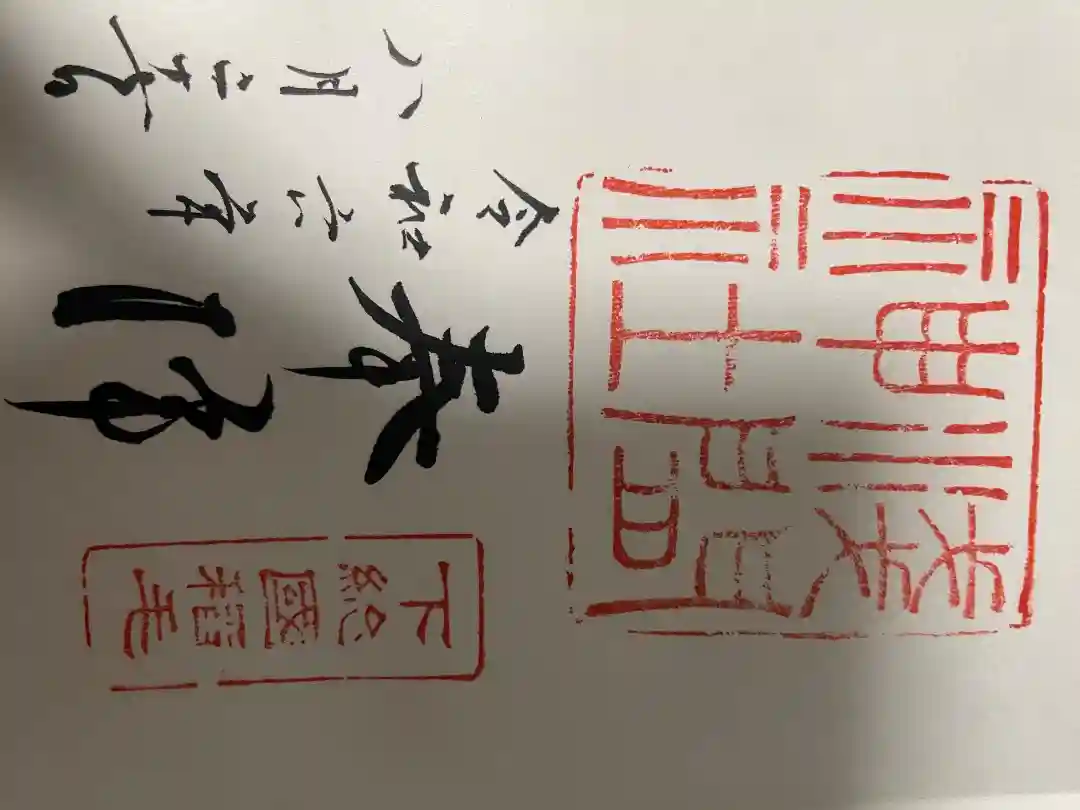 下総國稲毛
奉拝
淺間
神社
令和六年
八月二十日